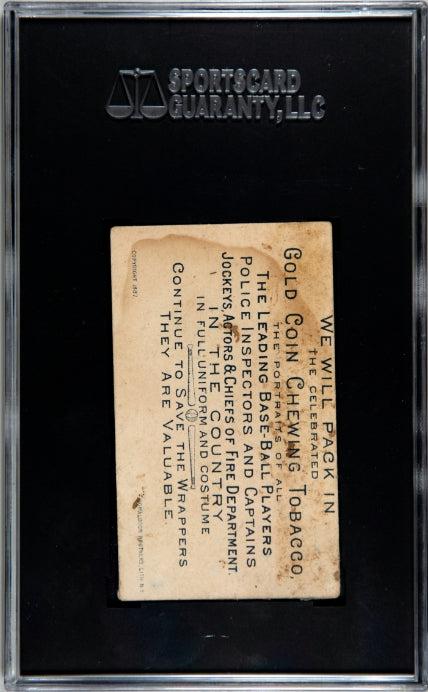 SPORTSCARD
GUARANTY, LLC
WE WILL PACK IN
THE CELEBRATED
GOLD COIN CHEWING TOBACCO,
THE PORTRAITS OF ALL
THE LEADING BASE-BALL PLAYERS
POLICE INSPECTORS AND CAPTAINS
JOCKEYS, ACTORS & CHIEFS OF FIRE DEPARTMENT.
IN THE COUNTRY
IN FULL UNIFORM AND COSTUME
CONTINUE TO SAVE THE WRAPPERS
THEY ARE VALUABLE.
COPYRIGHT 1887.
BROTHERS, LITH. N.Y.